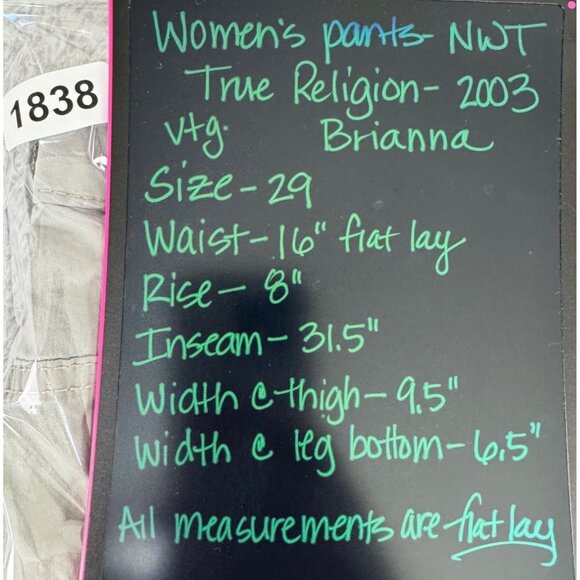 Women's pants- NWT
True Religion- 2003
1838
vtg. Brianna
Size- 29
Waist- 16" flat lay
Rise- 8"
Inseam- 31.5"
Width @ thigh- 9.5"
Width @ leg bottom- 6.5"
All measurements are flat lay